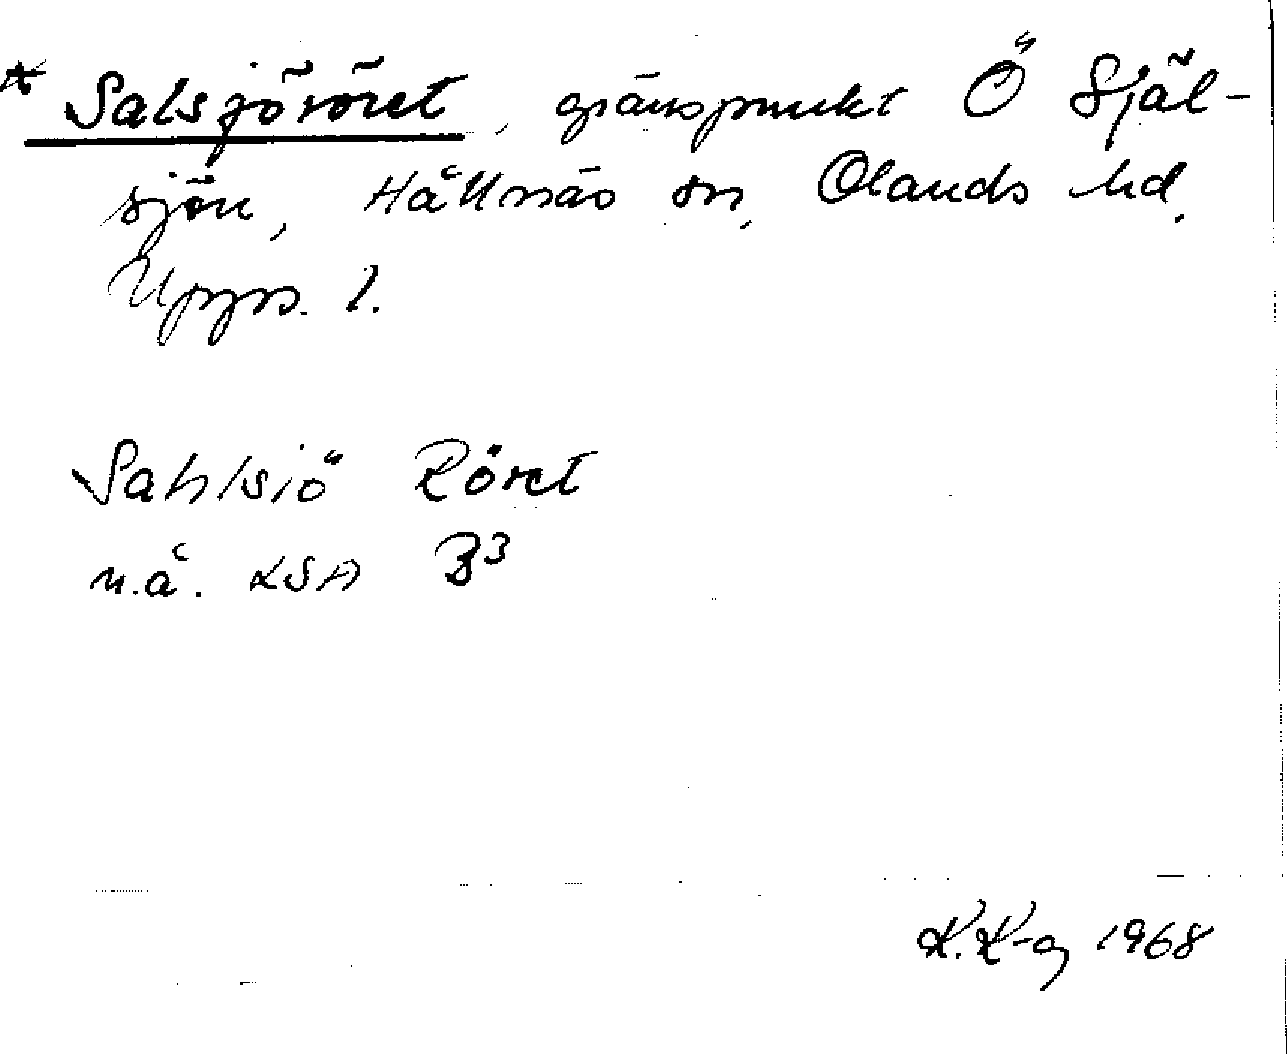 * Salsjöröret, gränspunkt Ö Själ-
sjön, Hållnäs sn, Olands hd,
Upps. l.
Sahlsiö Röret
n.å. LSA B3
K.K-g 1968